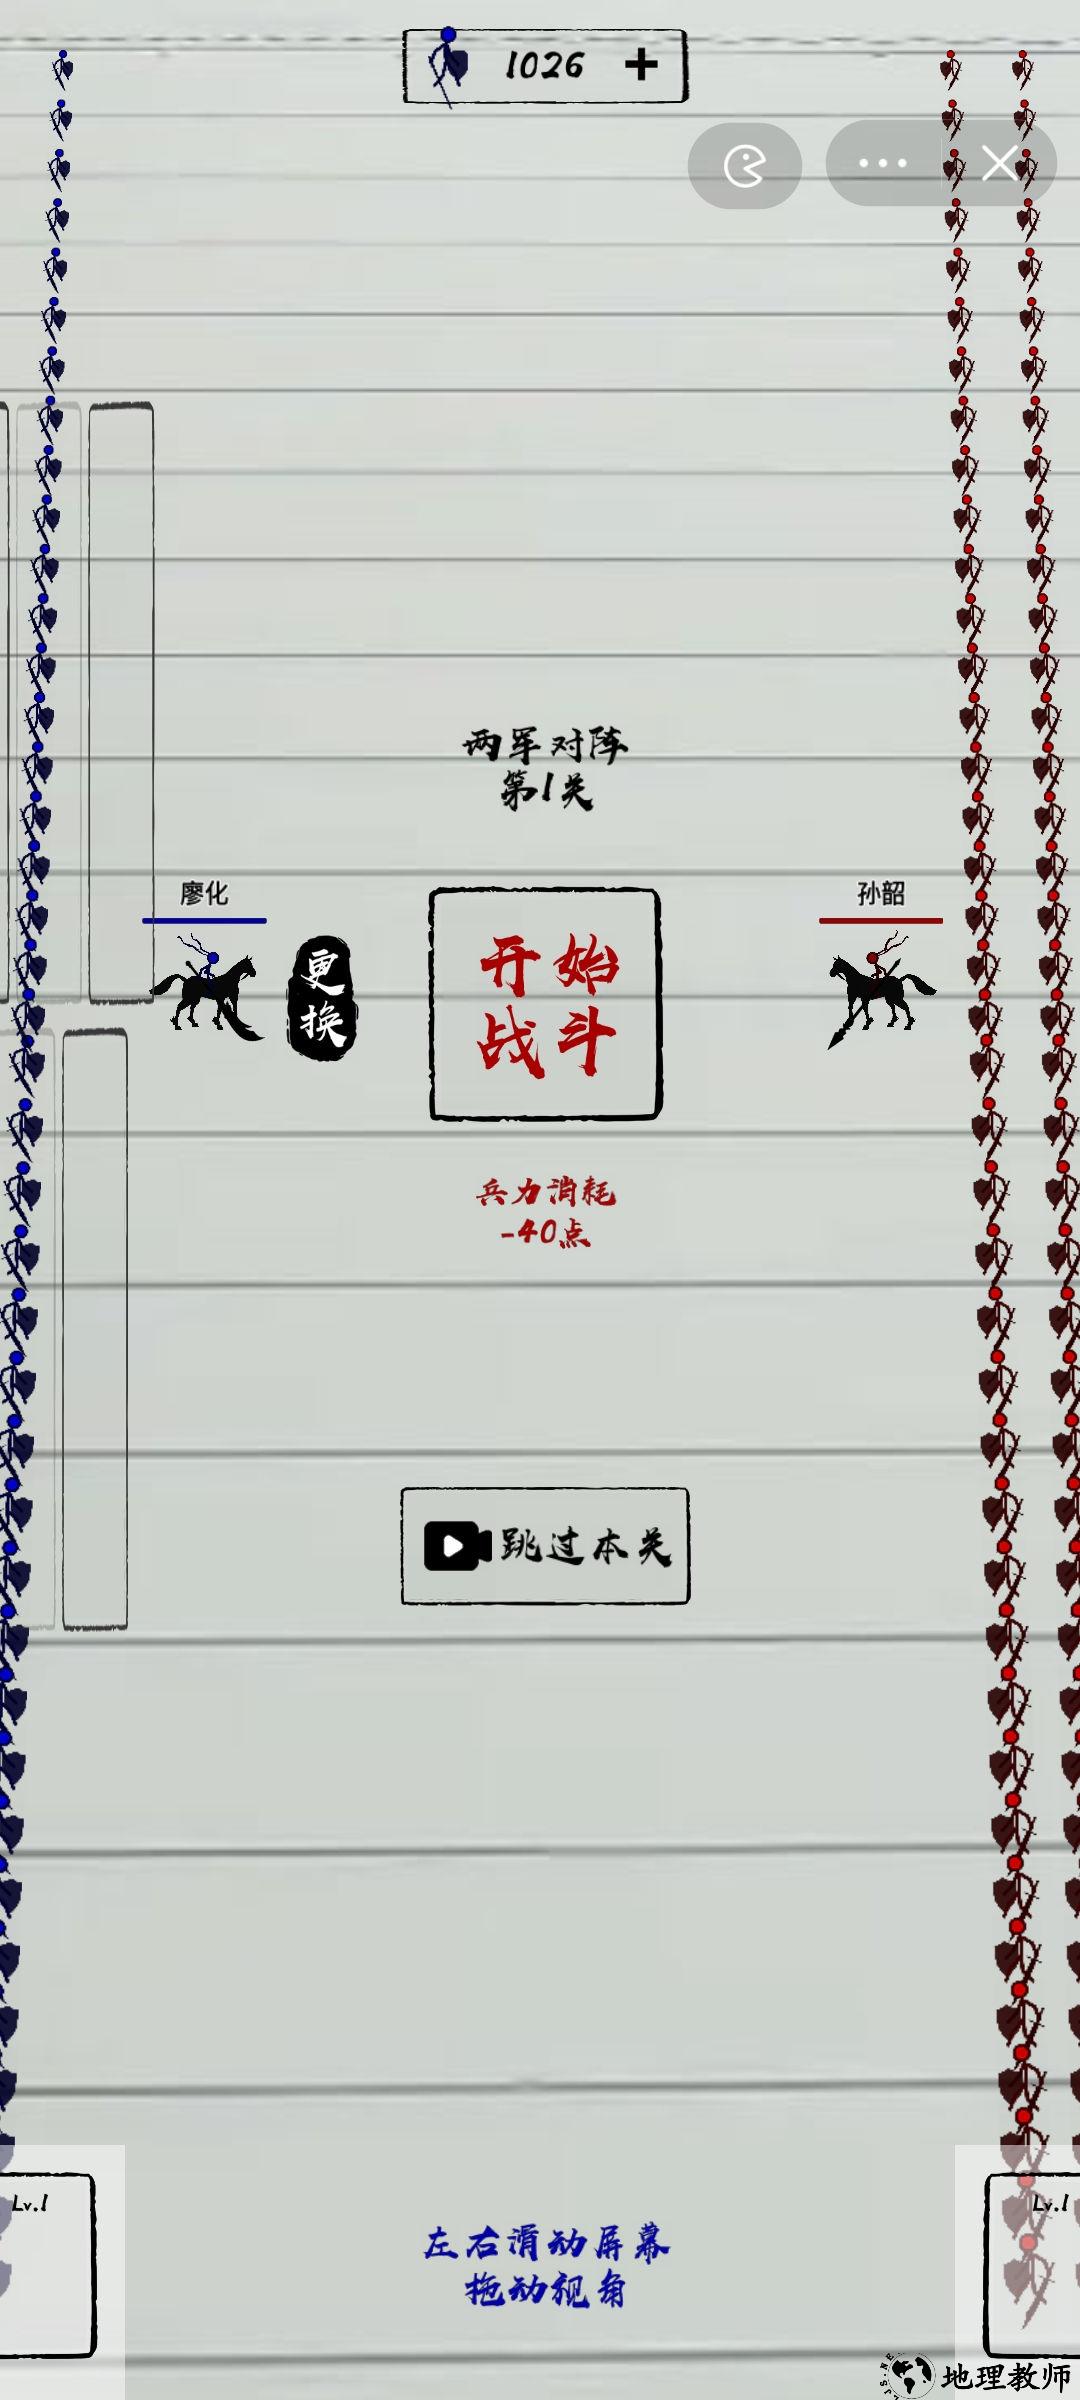 1026 +
两军对阵
第1关
廖化
孙韶
更换
开始
战斗
兵力消耗
-40点
跳过本关
Lv.1
Lv.1
左右滑动屏幕
拖动视角
地理教师